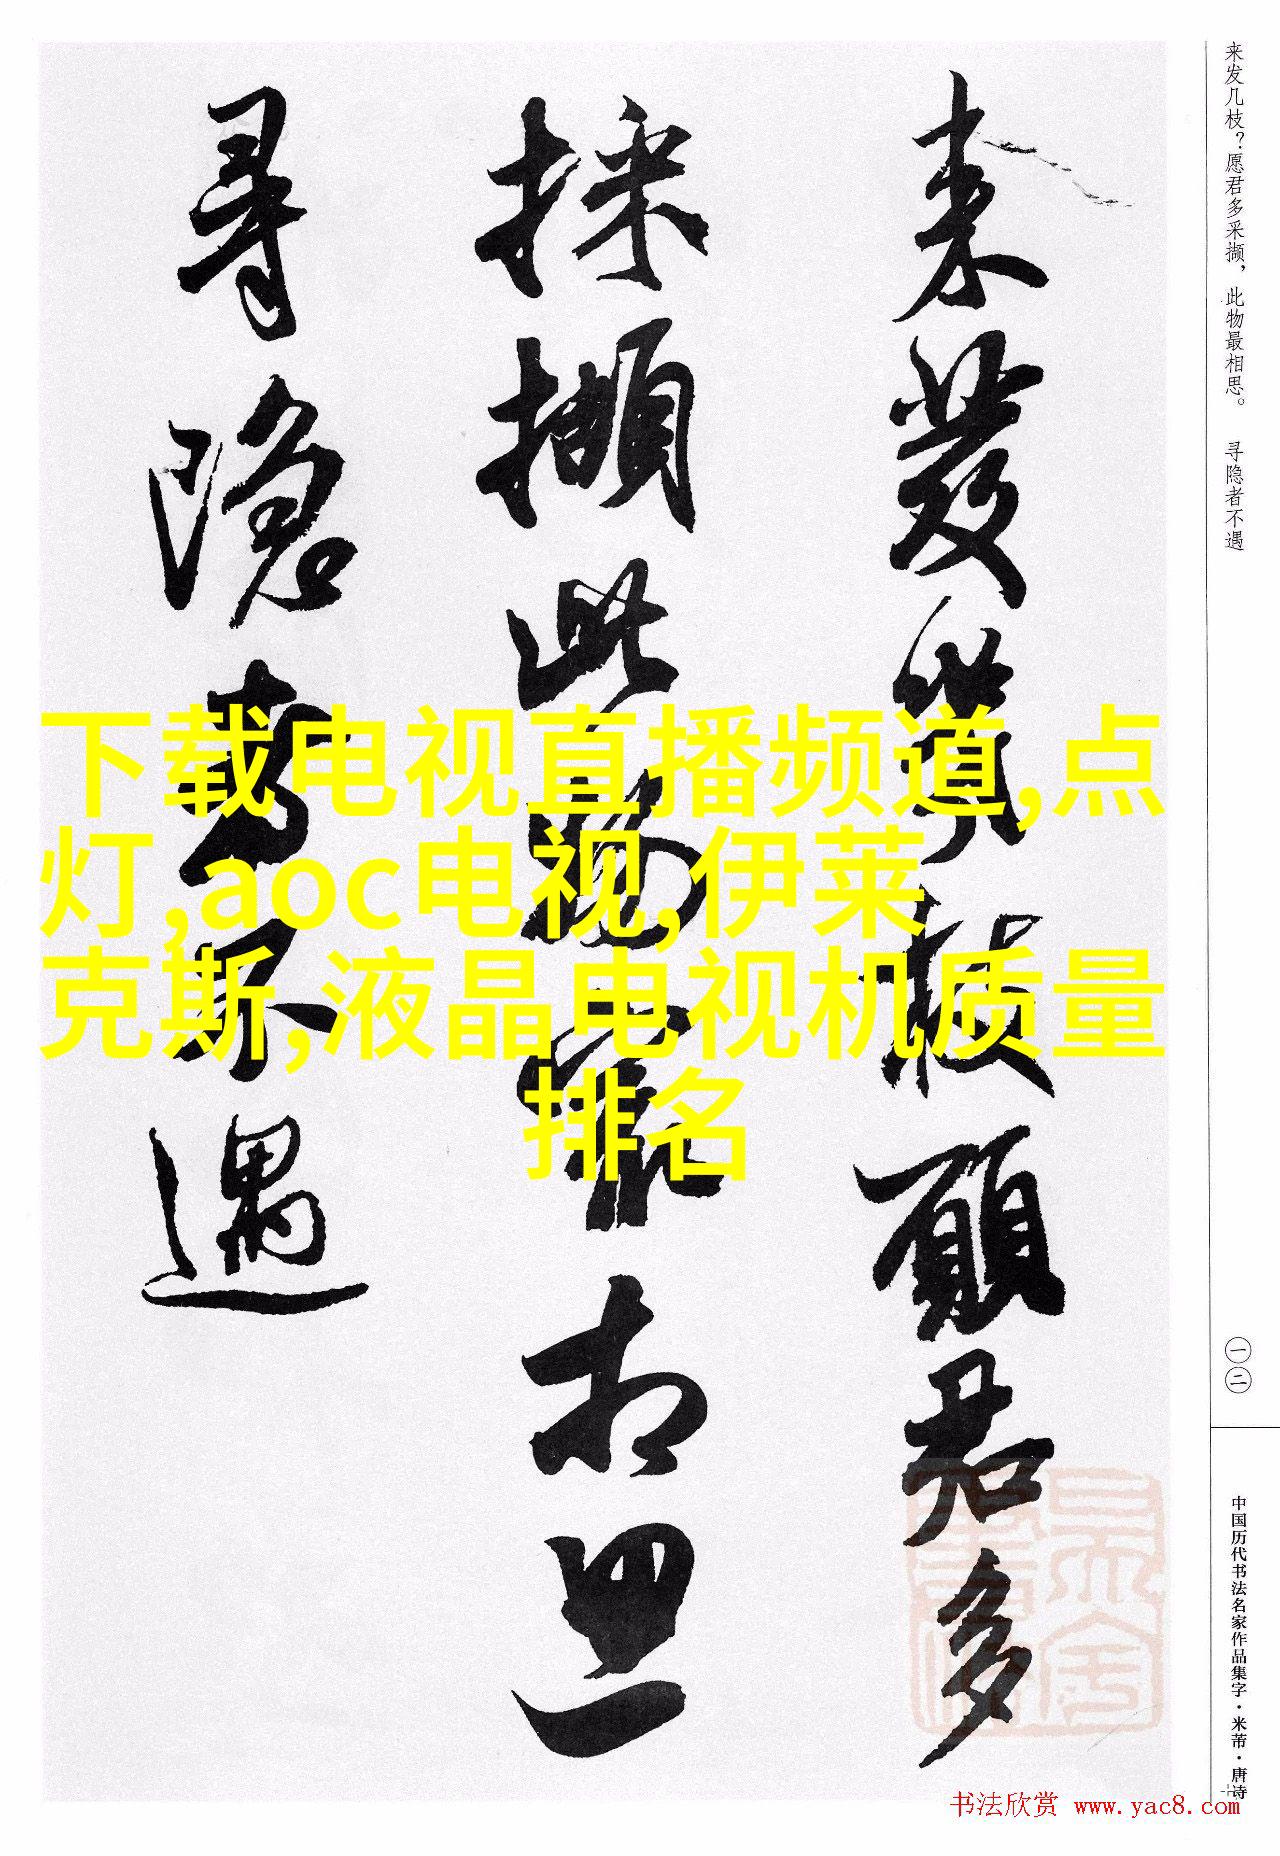 来发几枝？愿君多采撷，此物最相思。 寻隐者不遇
来發幾枝願君多
採擷此物最相思
尋隱者不遇
下载电视直播频道,点
灯,aoc电视,伊莱
克斯,液晶电视机质量
排名
一二
中国历代书法名家作品集字·米芾·唐诗
书法欣赏 www.yac8.com